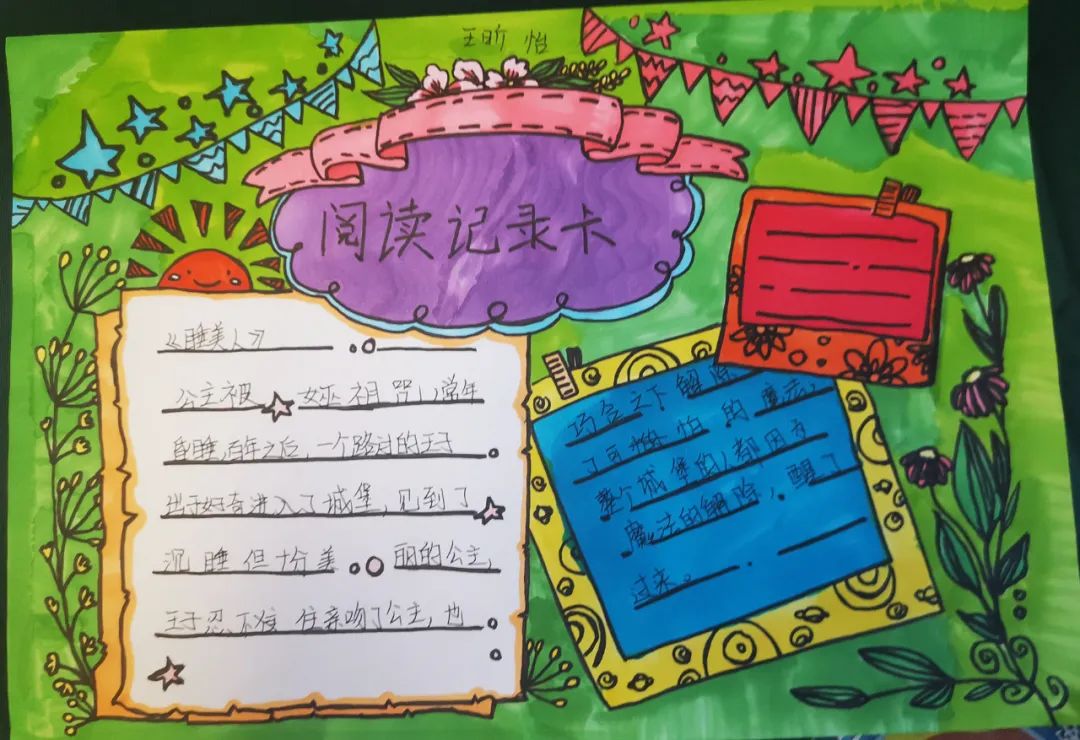 王昕怡
阅读记录卡
《睡美人》
公主被女巫诅咒,常年
昏睡,百年之后,一个路过的王子
出于好奇进入了城堡,见到了
沉睡但十分美丽的公主,
王子忍不住亲吻了公主,也
巧合之下解除
了可怕的魔法,
整个城堡的人都因为
魔法的解除,醒了
过来。